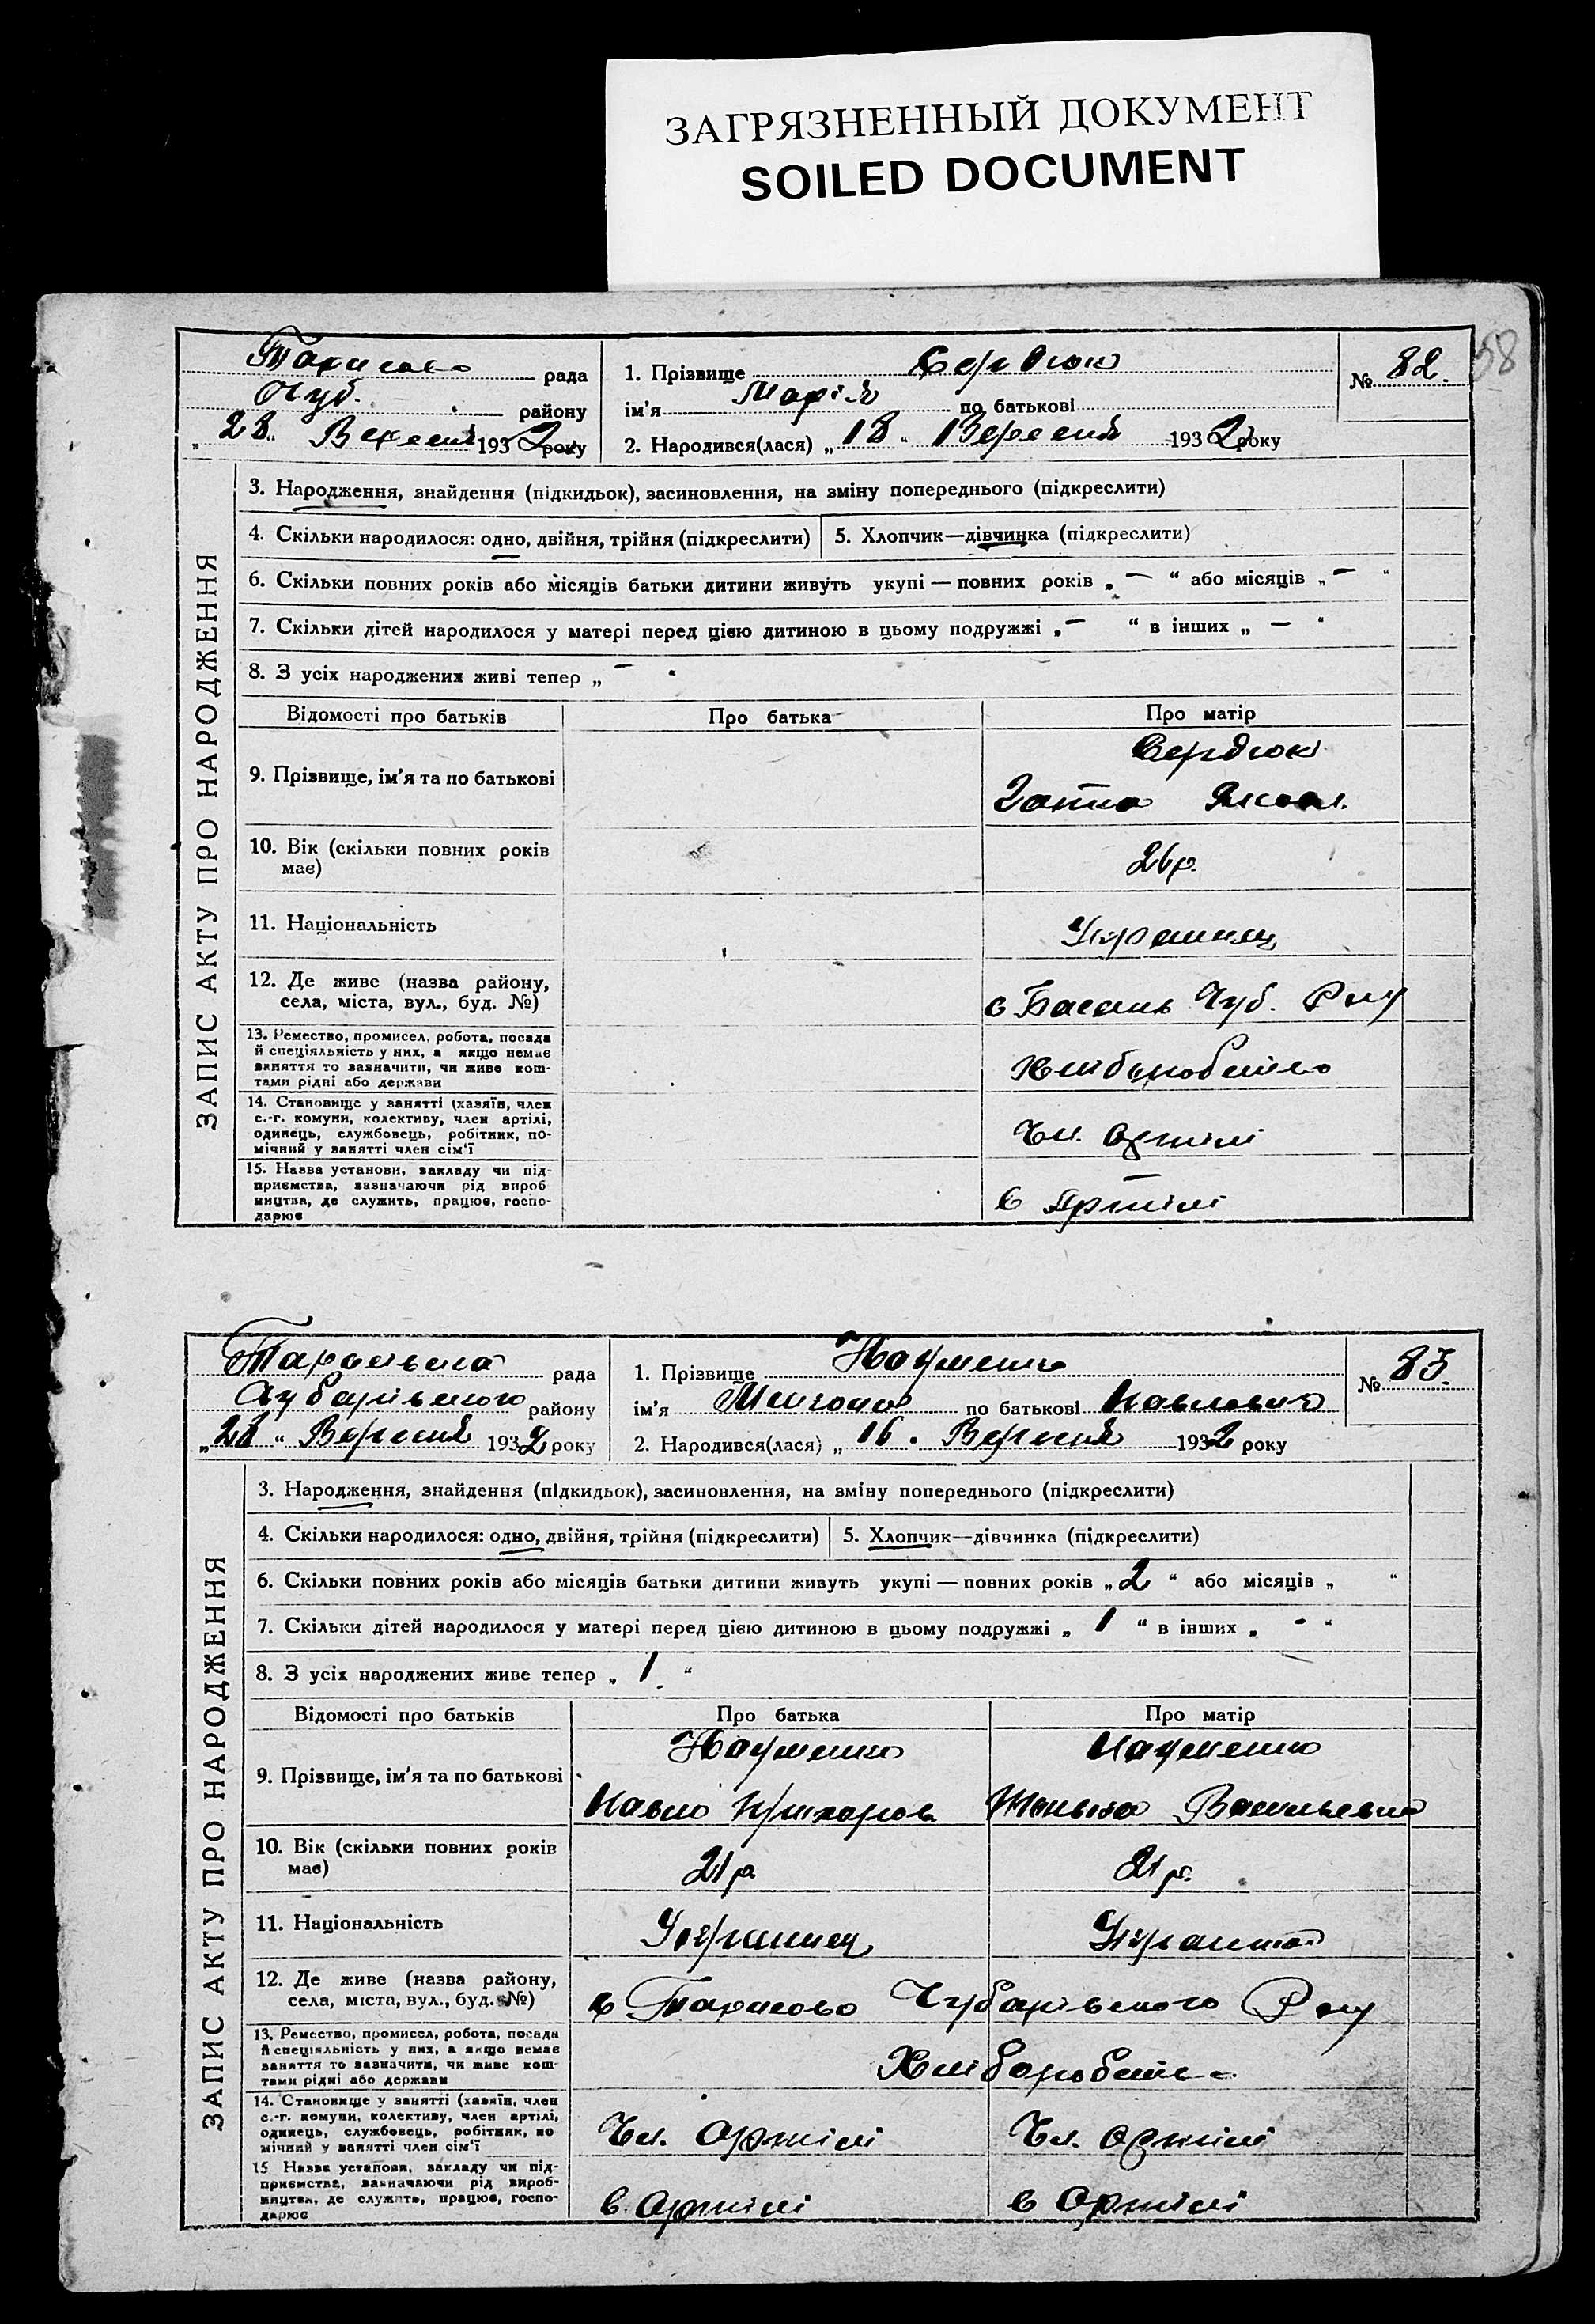 ЗАГРЯЗНЕННЫЙ ДОКУМЕНТ
SOILED DOCUMENT
58
рада
Чуб. району
„28“ Вересня 1932 року
1. Прізвище Сердюк
ім’я Марія по батькові
2. Народився(лася) „18“ Вересня 1932 року
№ 82.
ЗАПИС АКТУ ПРО НАРОДЖЕННЯ
3. Народження, знайдення (підкидьок), засиновлення, на зміну попереднього (підкреслити)
4. Скільки народилося: одно, двійня, трійня (підкреслити) 5. Хлопчик—дівчинка (підкреслити)
6. Скільки повних років або місяців батьки дитини живуть укупі — повних років „ — “ або місяців „ — “
7. Скільки дітей народилося у матері перед цією дитиною в цьому подружжі „ — “ в інших „ — “
8. З усіх народжених живі тепер „ — “
Відомості про батьків Про батька Про матір
9. Прізвище, ім’я та по батькові
Сердюк
10. Вік (скільки повних років має)
26 р.
11. Національність
12. Де живе (назва району,
села, міста, вул., буд. №)
с Басань Чуб. Р-ну
13. Ремество, промисел, робота, посада
й спеціяльність у них, а якщо немає
заняття то зазначити, чи живе кош-
тами рідні або держави
14. Становище у занятті (хазяїн, член
с.-г. комуни, колективу, член артілі,
одинець, службовець, робітник, по-
мічний у занятті член сім’ї
Чл. Артілі
15. Назва установи, закладу чи під-
приємства, зазначаючи рід вироб
ництва, де служить, працює, госпо-
дарює
в Артілі
Тарасівська рада
Чубарівського району
„28“ Вересня 1932 року
1. Прізвище Науменко
ім’я Микола по батькові Павлович
2. Народився(лася) „16. Вересня 1932 року
№ 83.
ЗАПИС АКТУ ПРО НАРОДЖЕННЯ
3. Народження, знайдення (підкидьок), засиновлення, на зміну попереднього (підкреслити)
4. Скільки народилося: одно, двійня, трійня (підкреслити) 5. Хлопчик—дівчинка (підкреслити)
6. Скільки повних років або місяців батьки дитини живуть укупі — повних років „2“ або місяців „ “
7. Скільки дітей народилося у матері перед цією дитиною в цьому подружжі „1“ в інших „ - “
8. З усіх народжених живе тепер „1“
Відомості про батьків Про батька Про матір
9. Прізвище, ім’я та по батькові
Науменко Науменко
Павло Васильевна
10. Вік (скільки повних років має)
21 р 21 р.
11. Національність
Українец Українка
12. Де живе (назва району,
села, міста, вул., буд. №)
с Тарасово Чубарівського Р-ну
13. Ремество, промисел, робота, посада
й спеціяльність у них, а якщо немає
заняття то зазначити, чи живе кош-
тами рідні або держави
14. Становище у занятті (хазяїн, член
с.-г. комуни, колективу, член артілі,
одинець, службовець, робітник, по
мічний у занятті член сім’ї
Чл. Артілі Чл. Артілі
15 Назва установи, закладу чи під-
приємства, зазначаючи рід вироб-
ництва, де служить, працює, госпо-
дарює
в Артілі в Артілі